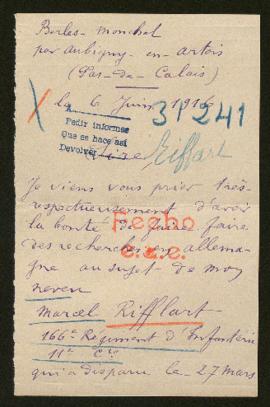 Berles-Monchel
par Aubigny-en-Artois
(Pas-de-Calais)
le 6 Juin 1916
31241
Pedir informes
Que se hace así
Devolver
Sire
Rifflart
Je viens vous prier très
respectueusement d'avoir
la bonté de faire faire
des recherches en allema-
gne au sujet de mon
neveu
Fecho
Marcel Rifflart
166e Régiment d'Infanterie
11e Cie
qui a disparu le 27 mars